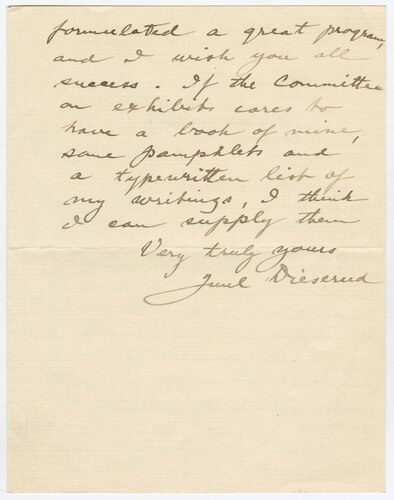 formulated a great program,
and I wish you all
success. If the Committee
on exhibits cares to
have a book of mine,
some pamphlets and
a typewritten list of
my writings, I think
I can supply them
Very truly yours
Juul Dieserud